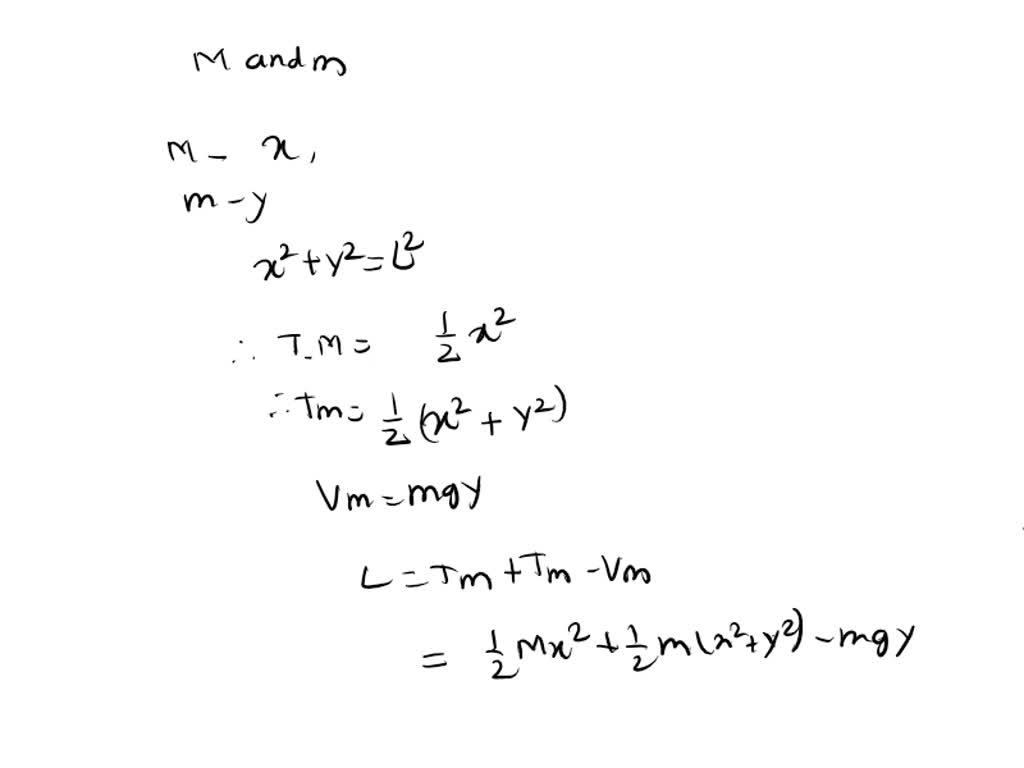 M and m
M - x,
m - y
x² + y² = L²
∴ T_M = 1/2 x²
∴ Tm = 1/2 (x² + y²)
Vm = mgy
L = Tm + Tm - Vm
= 1/2 Mx² + 1/2 m(x² + y²) - mgy